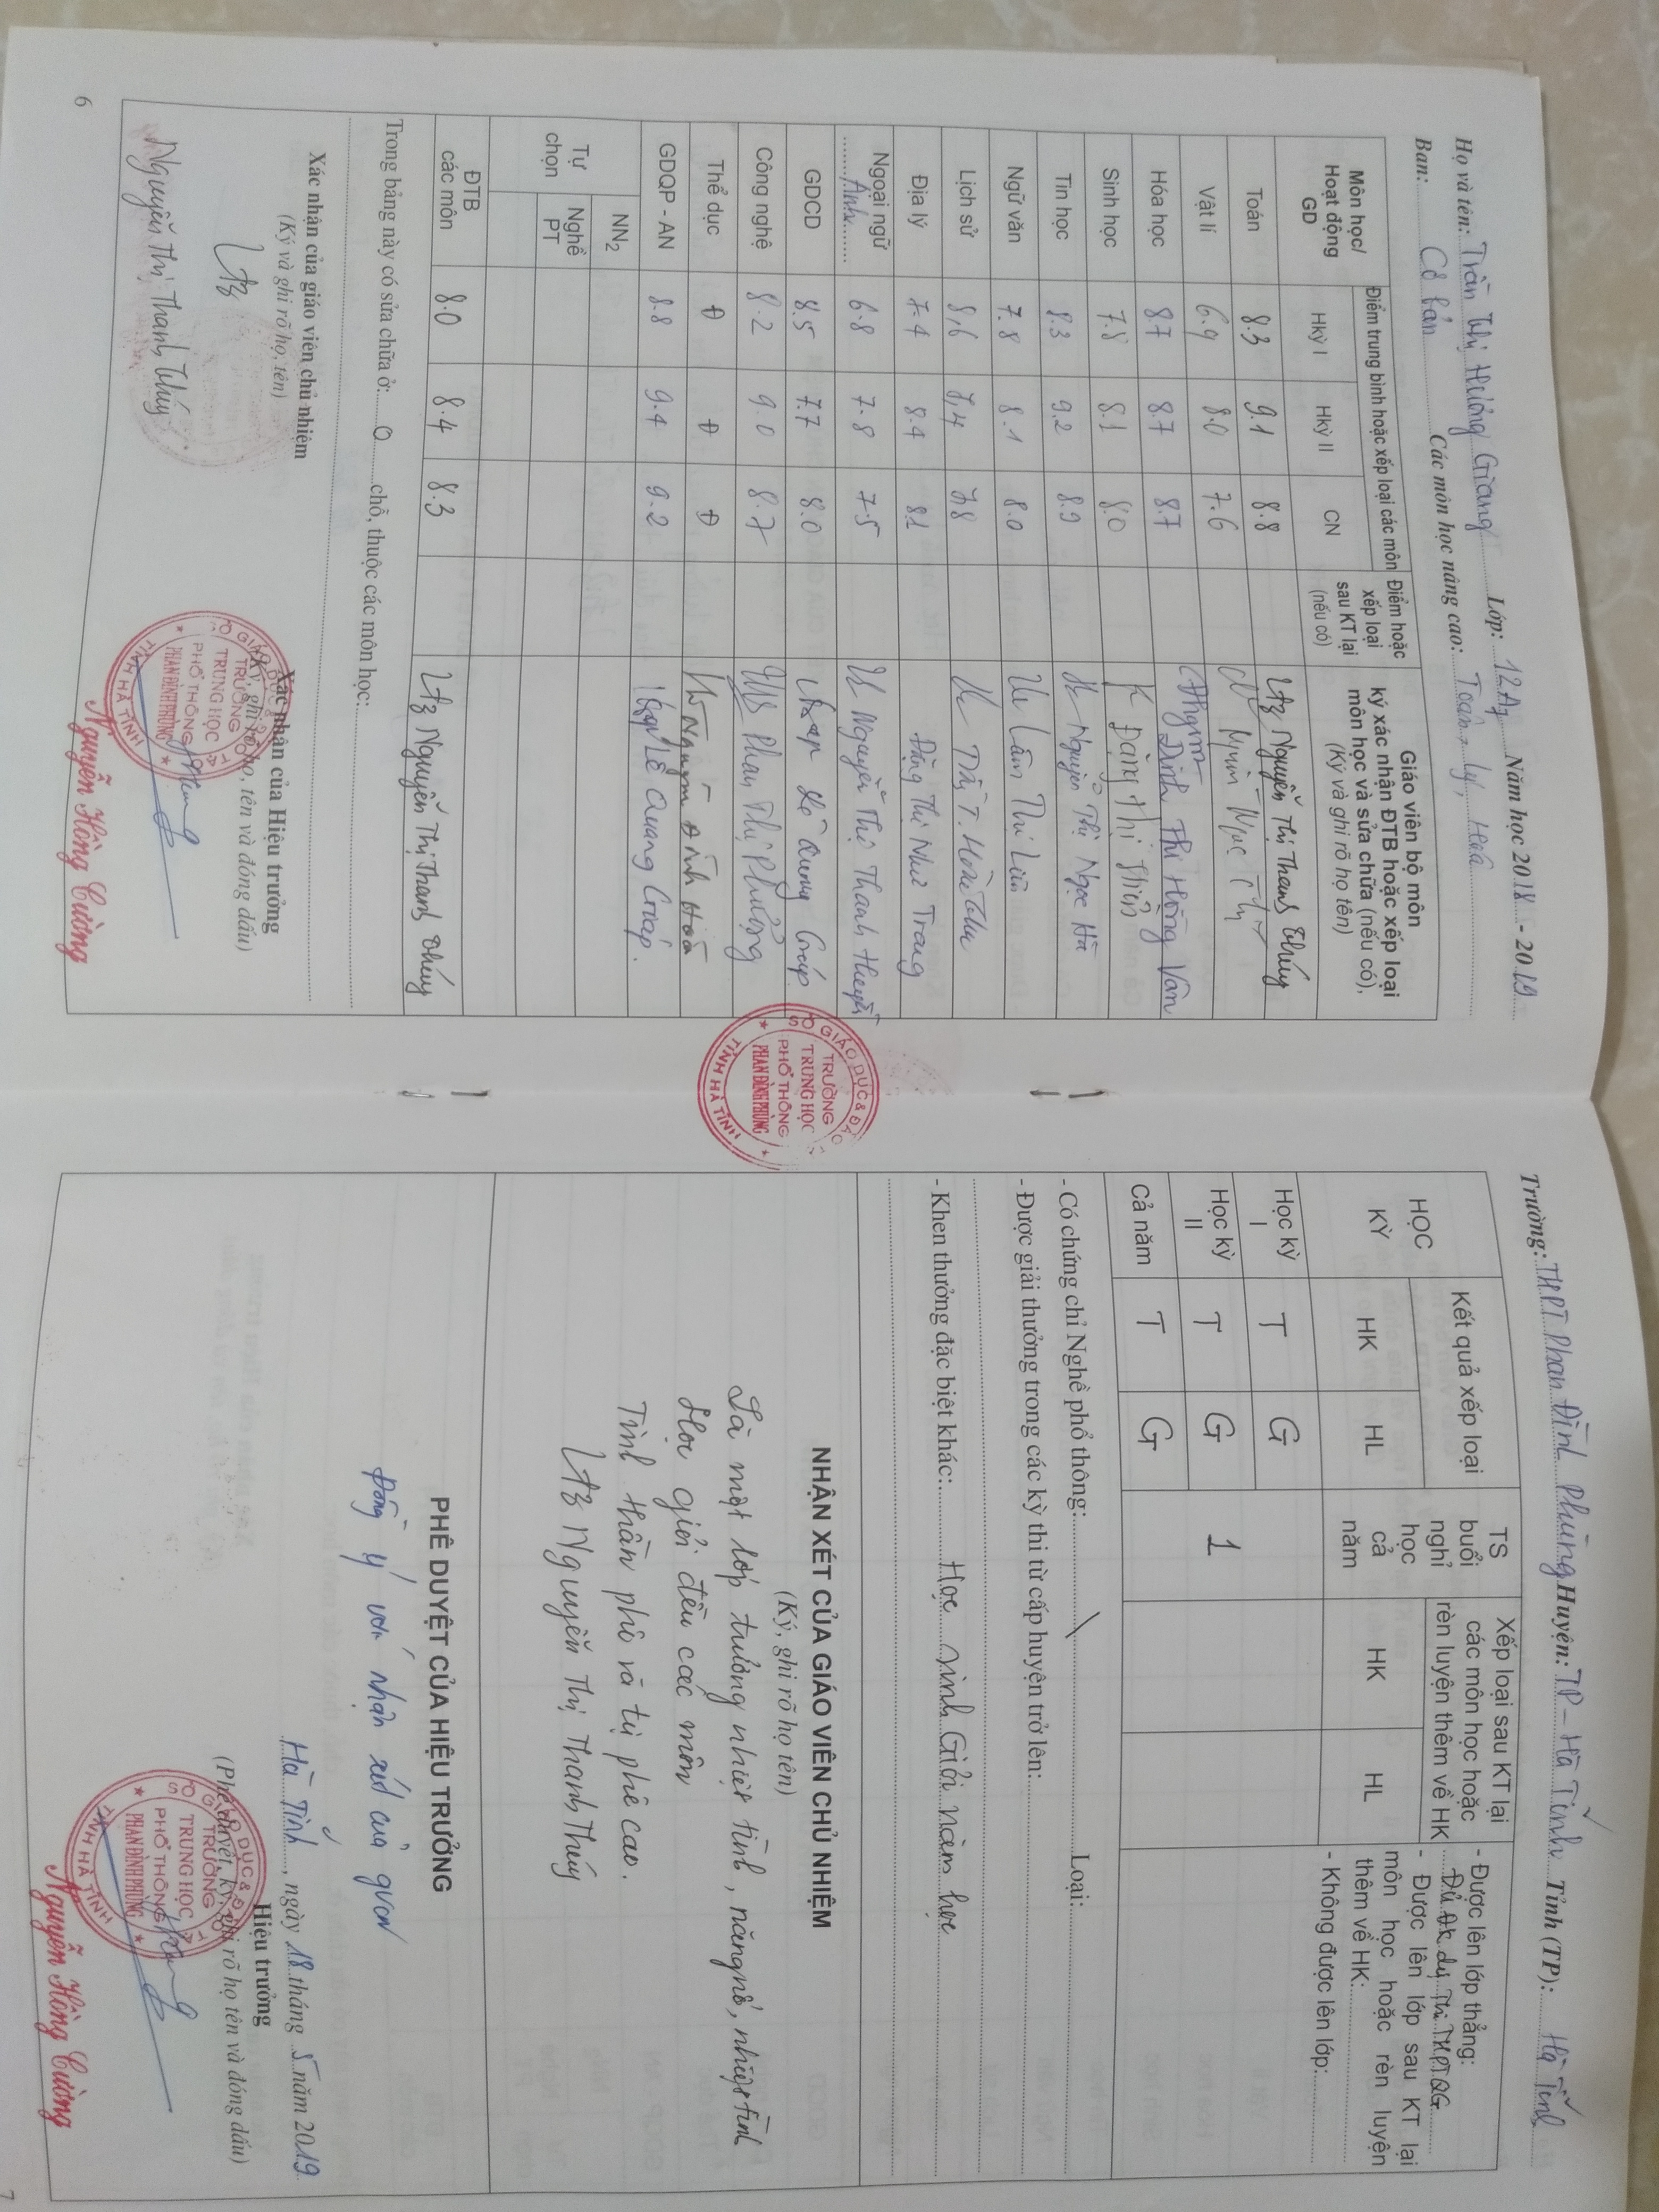 Họ và tên: Trần Thị Hương Giang Lớp: 12A1 Năm học 2018 - 2019
Ban: Cơ bản Các môn học nâng cao: Toán, Lý, Hóa
Môn học/ Hoạt động GD
Điểm trung bình hoặc xếp loại các môn
Hkỳ I Hkỳ II CN
Điểm hoặc xếp loại sau KT lại (nếu có)
Giáo viên bộ môn ký xác nhận ĐTB hoặc xếp loại môn học và sửa chữa (nếu có), (Ký và ghi rõ họ tên)
Toán 8.3 9.1 8.8 Nguyễn Thị Thanh Thúy
Vật lí 6.9 8.0 7.6
Hóa học 8.7 8.7 8.7 Đinh Thị Hồng Vân
Sinh học 7.8 8.1 8.0 Đặng Thị
Tin học 8.3 9.2 8.9 Nguyễn Thị Ngọc Hà
Ngữ văn 7.8 8.1 8.0 Lâm Thị
Lịch sử 8,6 7,4 7,8
Địa lý 7.4 8.4 8.1 Đặng Thị Như Trang
Ngoại ngữ Anh 6.8 7.8 7.5 Nguyễn Thị Thanh Huyền
GDCD 8.5 7.7 8.0 Lê Quang
Công nghệ 8.2 9.0 8.7 Phan Thị Phượng
Thể dục Đ Đ Đ Đình Hoà
GDQP - AN 8.8 9.4 9.2 Lê Quang
Tự chọn
NN2
Nghề PT
ĐTB các môn 8.0 8.4 8.3 Nguyễn Thị Thanh Thúy
Trong bảng này có sửa chữa ở: 0 chỗ, thuộc các môn học:
Xác nhận của giáo viên chủ nhiệm
(Ký và ghi rõ họ, tên)
Nguyễn Thị Thanh Thúy
Xác nhận của Hiệu trưởng
(Ký, ghi rõ họ, tên và đóng dấu)
SỞ GIÁO DỤC & ĐÀO TẠO
TRƯỜNG
TRUNG HỌC
PHỔ THÔNG
PHAN ĐÌNH PHÙNG
TỈNH HÀ TĨNH
Nguyễn Hồng Cường
6
SỞ GIÁO DỤC & ĐÀO TẠO
TRƯỜNG
TRUNG HỌC
PHỔ THÔNG
PHAN ĐÌNH PHÙNG
TỈNH HÀ TĨNH
Trường: THPT Phan Đình Phùng Huyện: TP - Hà Tĩnh Tỉnh (TP): Hà Tĩnh
HỌC KỲ
Kết quả xếp loại
HK HL
TS buổi nghỉ học cả năm
Xếp loại sau KT lại các môn học hoặc rèn luyện thêm về HK
HK HL
- Được lên lớp thẳng:
Đủ ĐK dự Thi THPTQG
- Được lên lớp sau KT lại môn học hoặc rèn luyện thêm về HK:
- Không được lên lớp:
Học kỳ I T G
Học kỳ II T G 1
Cả năm T G
- Có chứng chỉ Nghề phổ thông: \ Loại:
- Được giải thưởng trong các kỳ thi từ cấp huyện trở lên:
- Khen thưởng đặc biệt khác: Học sinh Giỏi năm học
NHẬN XÉT CỦA GIÁO VIÊN CHỦ NHIỆM
(Ký, ghi rõ họ tên)
Là một lớp trưởng nhiệt tình, năng nổ, nhiệt tình
Học giỏi đều các môn
Tinh thần phê và tự phê cao.
Nguyễn Thị Thanh Thúy
PHÊ DUYỆT CỦA HIỆU TRƯỞNG
Đồng ý với nhận xét của gvcn
Hà Tĩnh, ngày 18 tháng 5 năm 2019
Hiệu trưởng
(Phê duyệt, ký, ghi rõ họ tên và đóng dấu)
SỞ GIÁO DỤC & ĐÀO TẠO
TRƯỜNG
TRUNG HỌC
PHỔ THÔNG
PHAN ĐÌNH PHÙNG
TỈNH HÀ TĨNH
Nguyễn Hồng Cường
7